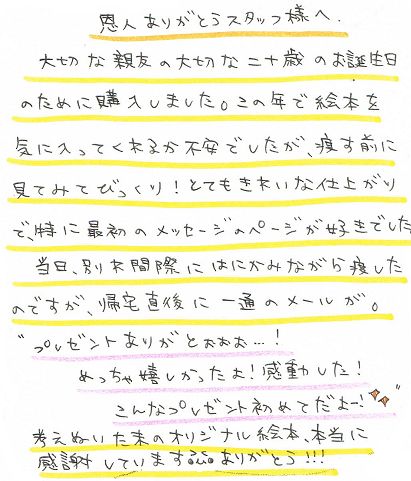 恩人ありがとうスタッフ様へ.
大切な親友の大切な二十歳のお誕生日
のために購入しました。この年で絵本を
気に入ってくれるか不安でしたが、渡す前に
見てみてびっくり!とてもきれいな仕上がり
で、特に最初のメッセージのページが好きでした
当日、別れ間際にはにかみながら渡した
のですが、帰宅直後に一通のメールが。
"プレゼントありがとおおお…!
めっちゃ嬉しかったよ!感動した!
こんなプレゼント初めてだよー!"
考えぬいた末のオリジナル絵本、本当に
感謝しています。ありがとう!!!